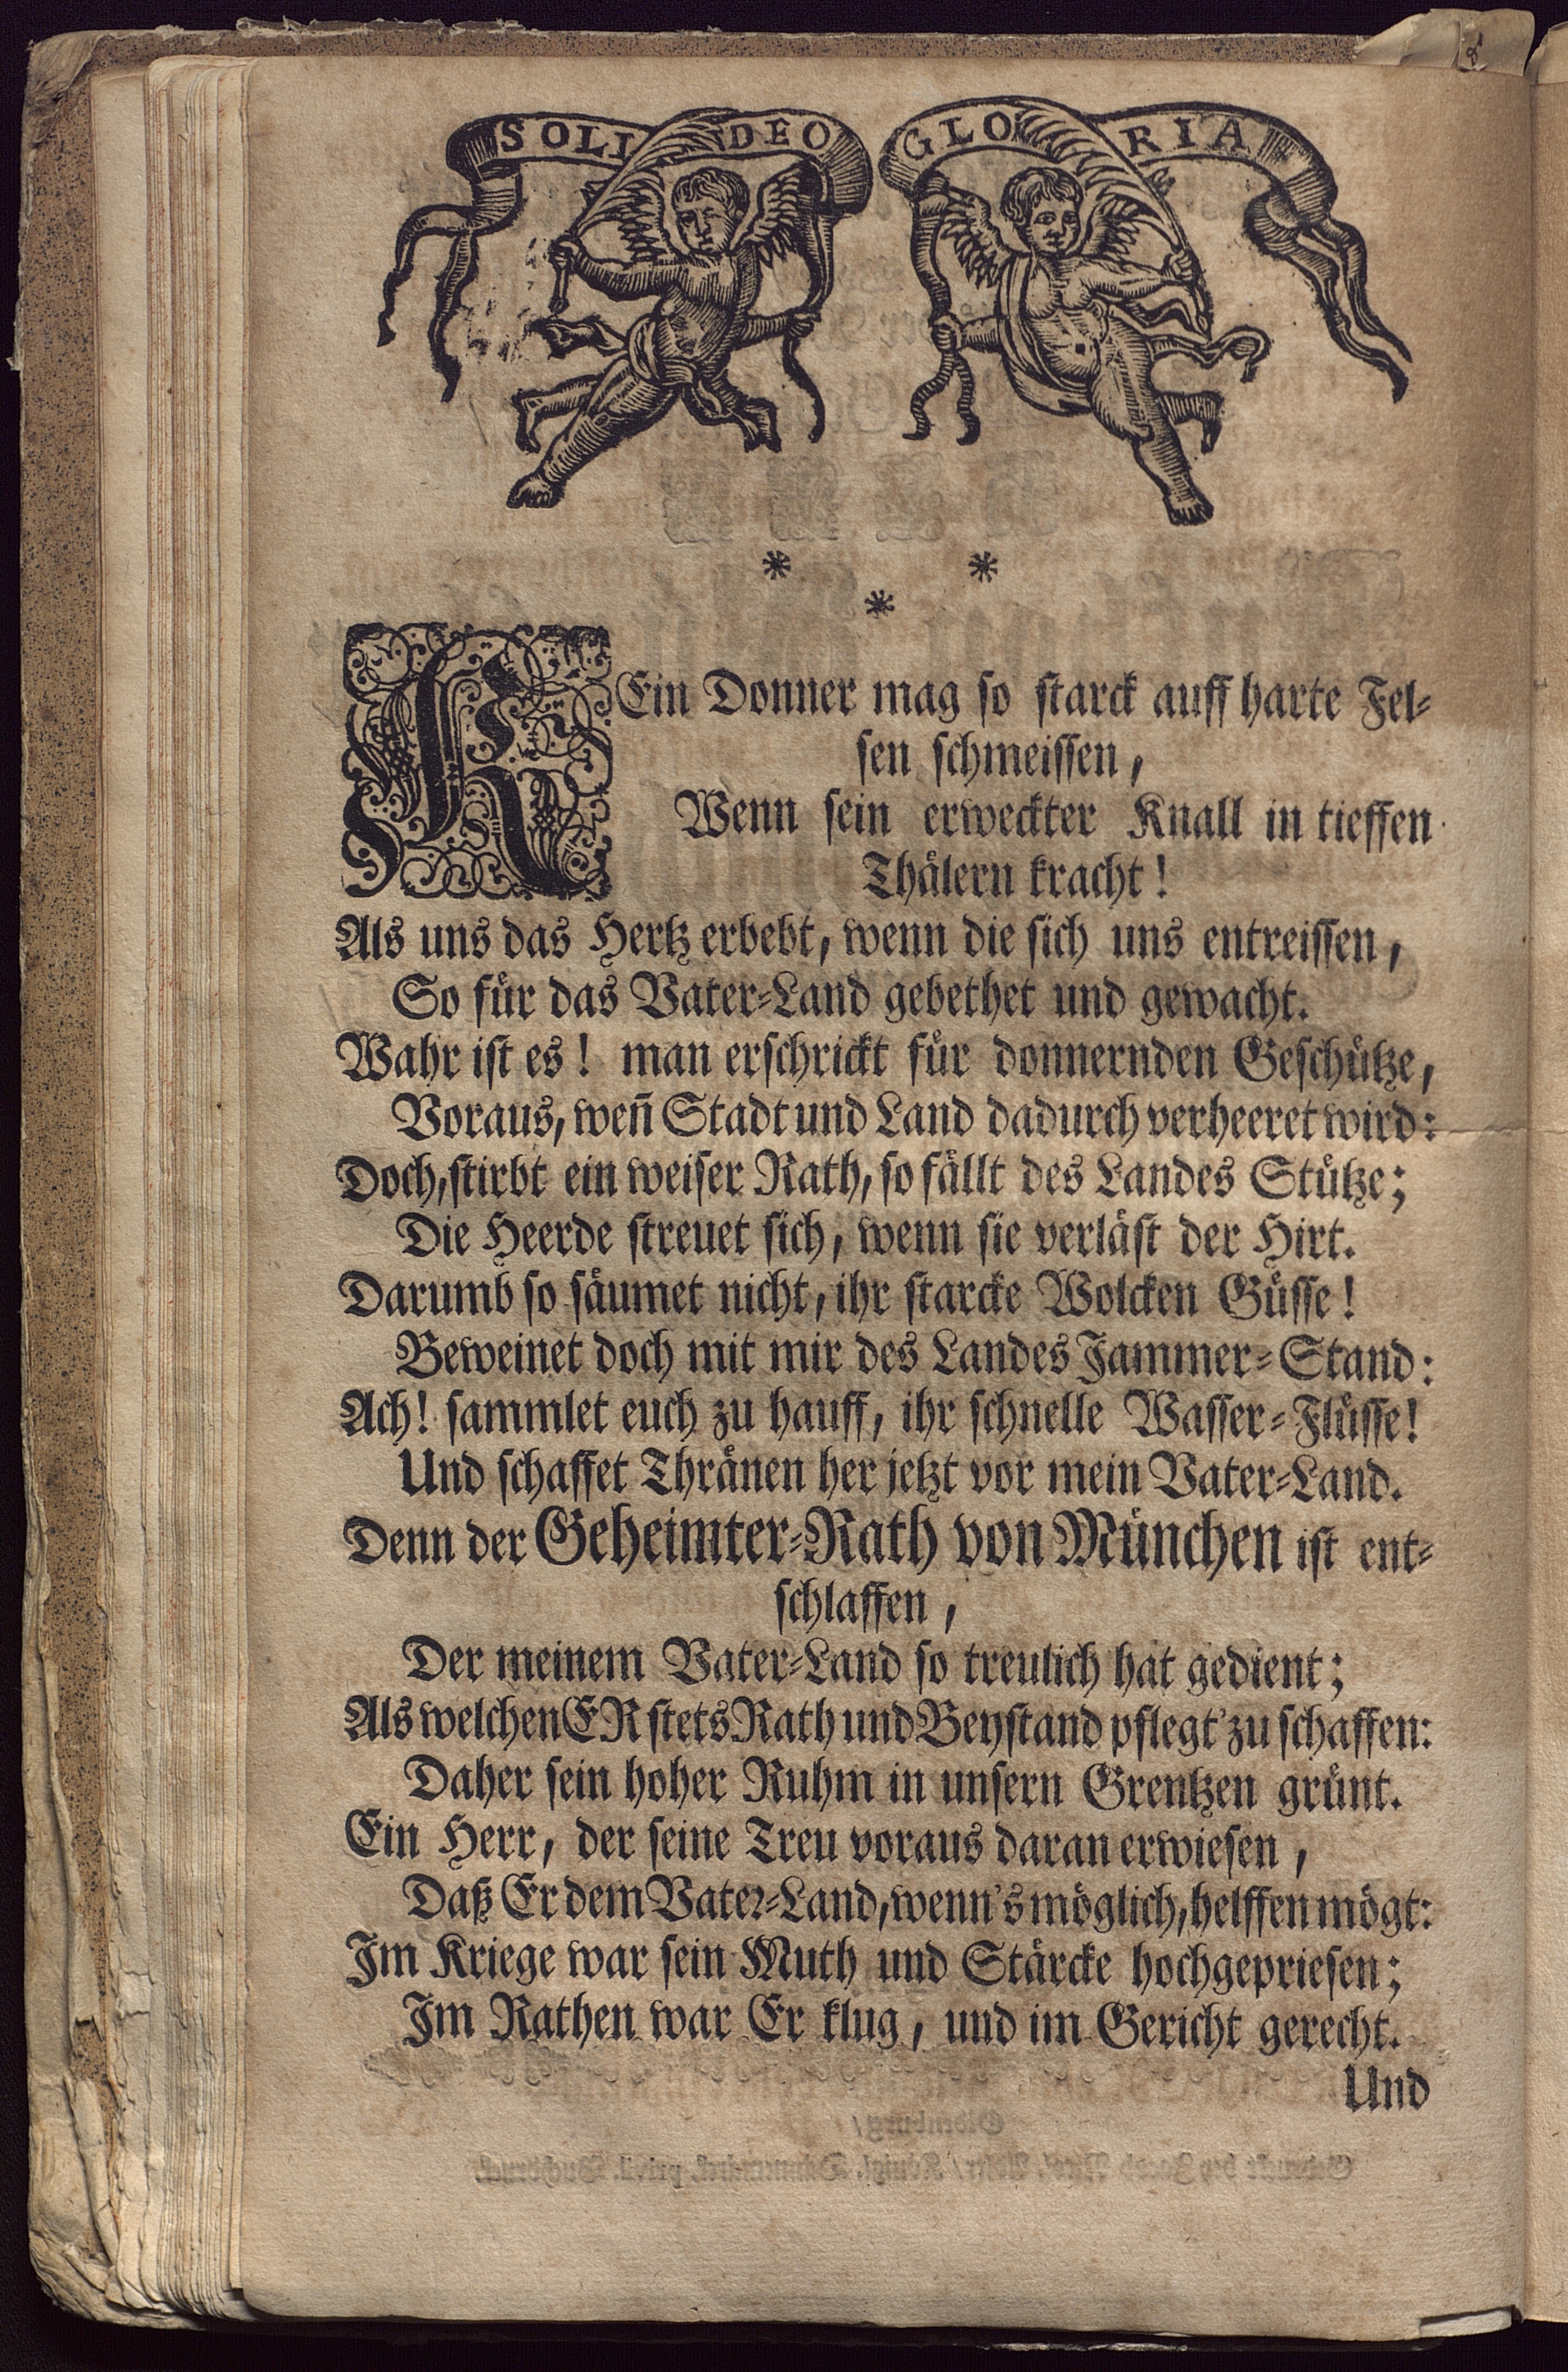 SOLI DEO GLORIA
* *
*
KEin Donner mag so starck auff harte Fel-
sen schmeissen,
Wenn sein erweckter Knall in tieffen
Thälern kracht!
Als uns das Hertz erbebt, wenn die sich uns entreissen,
So für das Vater-Land gebethet und gewacht.
Wahr ist es! man erschrickt für donnernden Geschütze,
Voraus, weñ Stadt und Land dadurch verheeret wird:
Doch, stirbt ein weiser Rath, so fällt des Landes Stütze;
Die Heerde streuet sich, wenn sie verläst der Hirt.
Darumb so säumet nicht, ihr starcke Wolcken Güsse!
Beweinet doch mit mir des Landes Jammer-Stand:
Ach! sammlet euch zu hauff, ihr schnelle Wasser-Flüsse!
Und schaffet Thränen her jetzt vor mein Vater-Land.
Denn der Geheimter-Rath von München ist ent-
schlaffen,
Der meinem Vater-Land so treulich hat gedient;
Als welchen ER stets Rath und Beystand pflegt' zu schaffen:
Daher sein hoher Ruhm in unsern Grentzen grünt.
Ein Herr, der seine Treu voraus daran erwiesen,
Daß Er dem Vater-Land, wenn's möglich, helffen mögt:
Im Kriege war sein Muth und Stärcke hochgepriesen;
Im Rathen war Er klug, und im Gericht gerecht.
Und